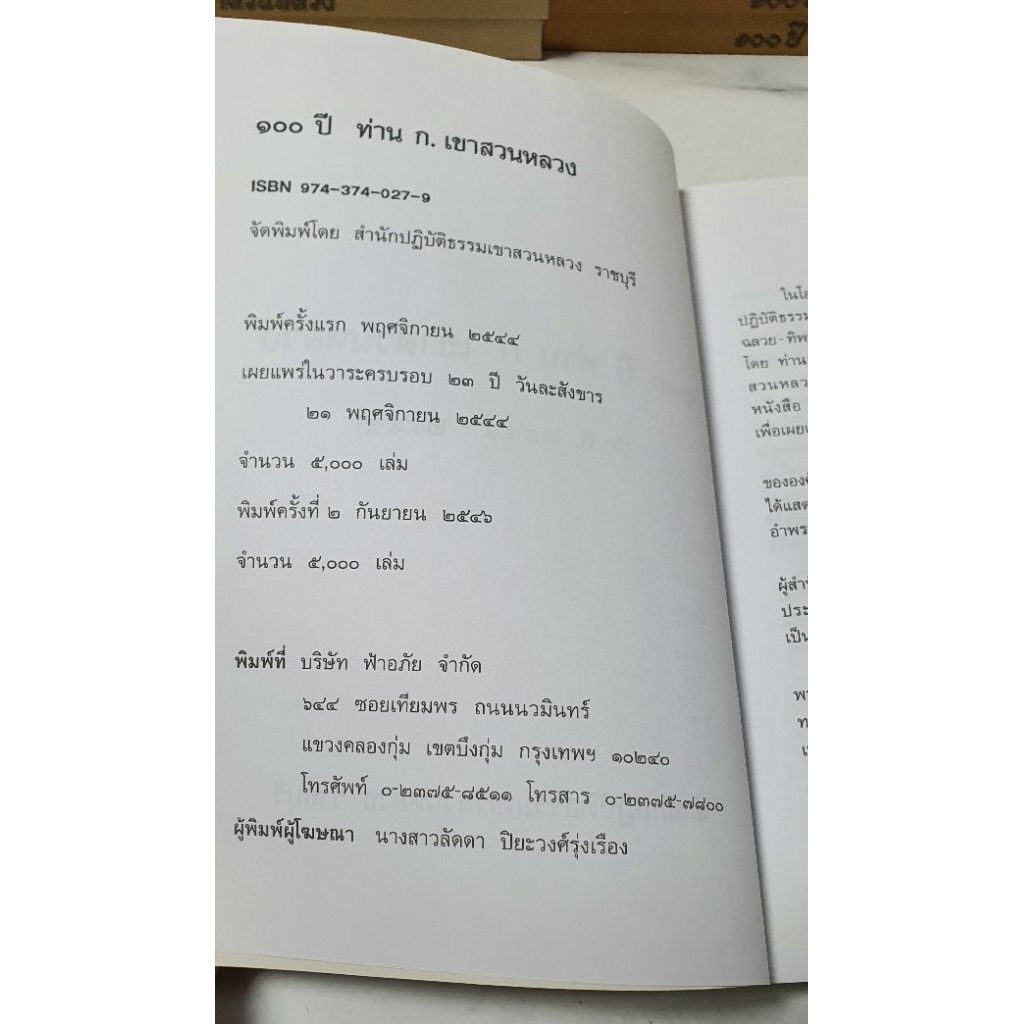 ๑๐๐ ปี
๑๐๐ ปี ท่าน ก. เขาสวนหลวง
ISBN 974-374-027-9
จัดพิมพ์โดย สำนักปฏิบัติธรรมเขาสวนหลวง ราชบุรี
พิมพ์ครั้งแรก พฤศจิกายน ๒๕๔๔
เผยแพร่ในวาระครบรอบ ๒๓ ปี วันละสังขาร
๒๑ พฤศจิกายน ๒๕๔๔
จำนวน ๕,๐๐๐ เล่ม
พิมพ์ครั้งที่ ๒ กันยายน ๒๕๔๖
จำนวน ๕,๐๐๐ เล่ม
พิมพ์ที่ บริษัท ฟ้าอภัย จำกัด
๖๔๔ ซอยเทียมพร ถนนนวมินทร์
แขวงคลองกุ่ม เขตบึงกุ่ม กรุงเทพฯ ๑๐๒๔๐
โทรศัพท์ ๐-๒๓๗๕-๘๕๑๑ โทรสาร ๐-๒๓๗๕-๗๘๐๐
ผู้พิมพ์ผู้โฆษณา นางสาวลัดดา ปิยะวงศ์รุ่งเรือง
ปฏิบัติธรรม
ฉลวย-ทิพ
โดย ท่าน
สวนหลว
หนังสือ
เพื่อเผยแ
ขององค์
ได้แสด
อำพร
ประ
เป็น